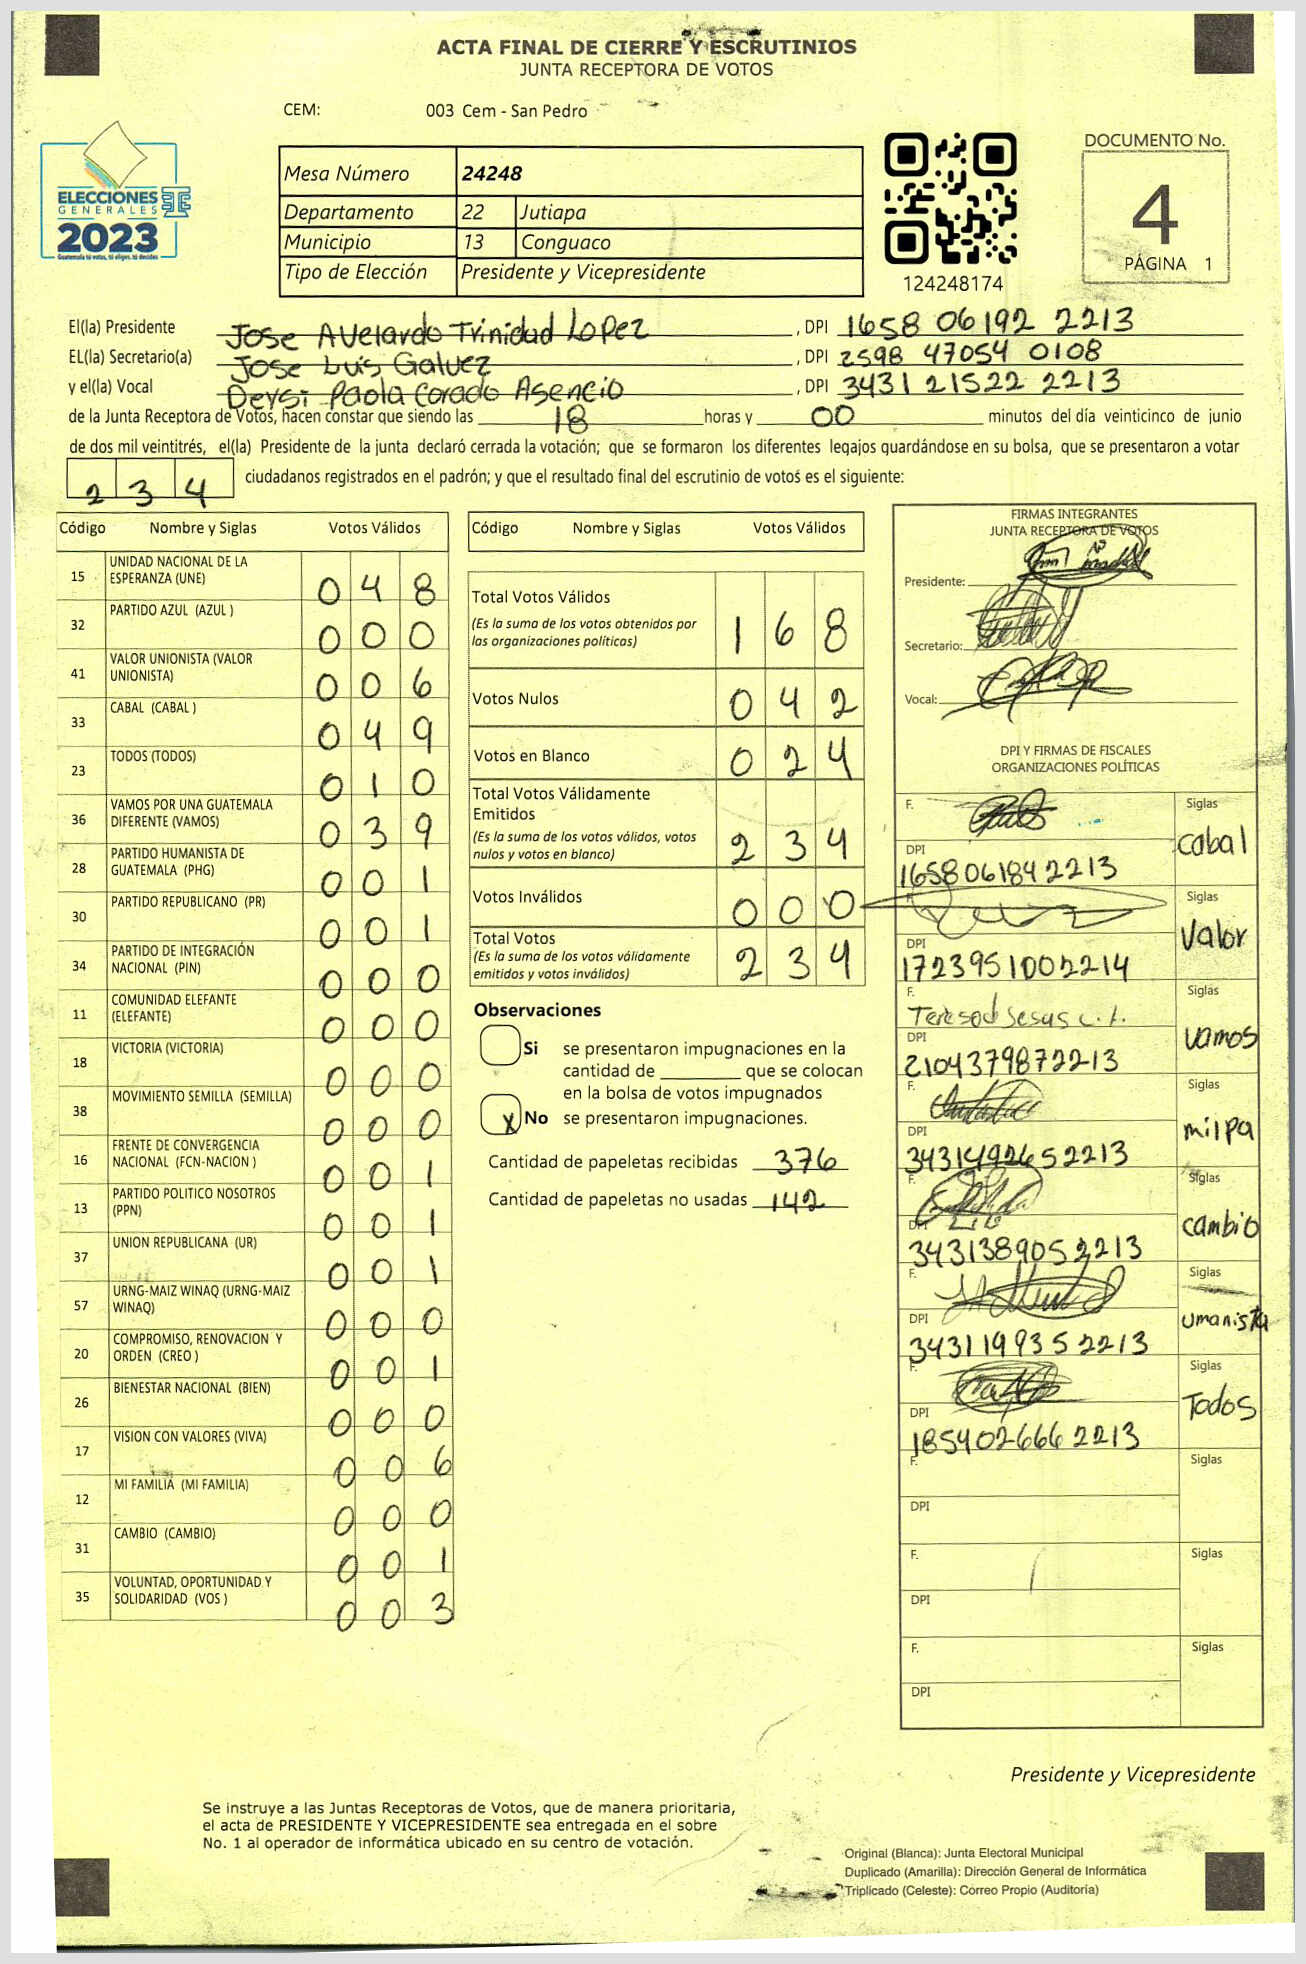 ACTA FINAL DE CIERRE Y ESCRUTINIOS
JUNTA RECEPTORA DE VOTOS
CEM: 003 Cem - San Pedro
ELECCIONES
GENERALES
2023
Guatemala tú votas, tú eliges, tú decides
Mesa Número 24248
Departamento 22 Jutiapa
Municipio 13 Conguaco
Tipo de Elección Presidente y Vicepresidente
124248174
DOCUMENTO No.
4
PÁGINA 1
El(la) Presidente Jose Avelardo Trinidad Lopez , DPI 1658 06192 2213
EL(la) Secretario(a) Jose Luis Galvez , DPI 2598 47054 0108
y el(la) Vocal Deysi Paola Corado Asencio , DPI 3431 21522 2213
de la Junta Receptora de Votos, hacen constar que siendo las 18 horas y 00 minutos del día veinticinco de junio
de dos mil veintitrés, el(la) Presidente de la junta declaró cerrada la votación; que se formaron los diferentes legajos guardándose en su bolsa, que se presentaron a votar
2 3 4 ciudadanos registrados en el padrón; y que el resultado final del escrutinio de votos es el siguiente:
Código Nombre y Siglas Votos Válidos
15 UNIDAD NACIONAL DE LA ESPERANZA (UNE) 0 4 8
32 PARTIDO AZUL (AZUL ) 0 0 0
41 VALOR UNIONISTA (VALOR UNIONISTA) 0 0 6
33 CABAL (CABAL ) 0 4 9
23 TODOS (TODOS) 0 1 0
36 VAMOS POR UNA GUATEMALA DIFERENTE (VAMOS) 0 3 9
28 PARTIDO HUMANISTA DE GUATEMALA (PHG) 0 0 1
30 PARTIDO REPUBLICANO (PR) 0 0 1
34 PARTIDO DE INTEGRACIÓN NACIONAL (PIN) 0 0 0
11 COMUNIDAD ELEFANTE (ELEFANTE) 0 0 0
18 VICTORIA (VICTORIA) 0 0 0
38 MOVIMIENTO SEMILLA (SEMILLA) 0 0 0
16 FRENTE DE CONVERGENCIA NACIONAL (FCN-NACION ) 0 0 1
13 PARTIDO POLITICO NOSOTROS (PPN) 0 0 1
37 UNION REPUBLICANA (UR) 0 0 1
57 URNG-MAIZ WINAQ (URNG-MAIZ WINAQ) 0 0 0
20 COMPROMISO, RENOVACION Y ORDEN (CREO ) 0 0 1
26 BIENESTAR NACIONAL (BIEN) 0 0 0
17 VISION CON VALORES (VIVA) 0 0 6
12 MI FAMILIA (MI FAMILIA) 0 0 0
31 CAMBIO (CAMBIO) 0 0 1
35 VOLUNTAD, OPORTUNIDAD Y SOLIDARIDAD (VOS ) 0 0 3
Código Nombre y Siglas Votos Válidos
Total Votos Válidos 1 6 8
(Es la suma de los votos obtenidos por
las organizaciones políticas)
Votos Nulos 0 4 2
Votos en Blanco 0 2 4
Total Votos Válidamente
Emitidos 2 3 4
(Es la suma de los votos válidos, votos
nulos y votos en blanco)
Votos Inválidos 0 0 0
Total Votos 2 3 4
(Es la suma de los votos válidamente
emitidos y votos inválidos)
Observaciones
Si se presentaron impugnaciones en la
cantidad de ________ que se colocan
en la bolsa de votos impugnados
X No se presentaron impugnaciones.
Cantidad de papeletas recibidas 376
Cantidad de papeletas no usadas 142
FIRMAS INTEGRANTES
JUNTA RECEPTORA DE VOTOS
Presidente:
Secretario:
Vocal:
DPI Y FIRMAS DE FISCALES
ORGANIZACIONES POLÍTICAS
F. Siglas
cabal
DPI
1658061842213
F. Siglas
Valor
DPI
1723951002214
F. Siglas
Teresa d Jesus
vamos
DPI
2104379872213
F. Siglas
milpa
DPI
3431492652213
F. Siglas
cambio
DPI
3431389052213
F. Siglas
umanista
DPI
3431199352213
F. Siglas
Todos
DPI
1854026662213
F. Siglas
DPI
F. Siglas
DPI
F. Siglas
DPI
Presidente y Vicepresidente
Se instruye a las Juntas Receptoras de Votos, que de manera prioritaria,
el acta de PRESIDENTE Y VICEPRESIDENTE sea entregada en el sobre
No. 1 al operador de informática ubicado en su centro de votación.
Original (Blanca): Junta Electoral Municipal
Duplicado (Amarilla): Dirección General de Informática
Triplicado (Celeste): Correo Propio (Auditoría)